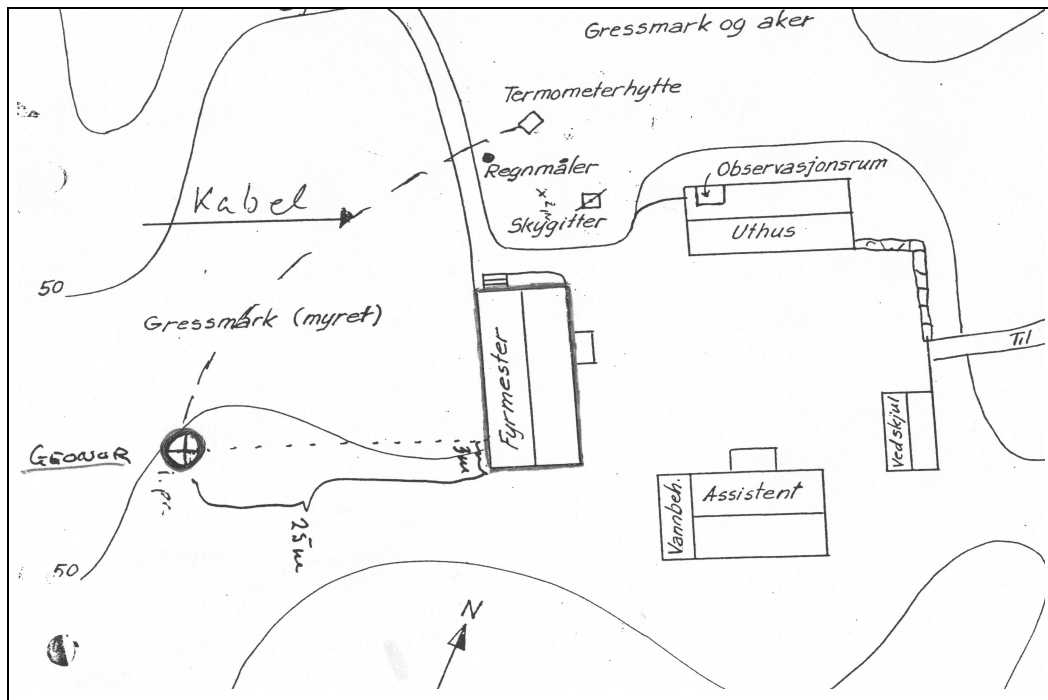 Gressmark og aker
Termometerhytte
Regnmåler
Observasjonsrum
Kabel
Skygitter
Uthus
50
Gressmark (myret)
Til
Fyrmester
Vedskjul
GEONOR
3m
i.pr.
Vannbeh.
Assistent
25m
50
N